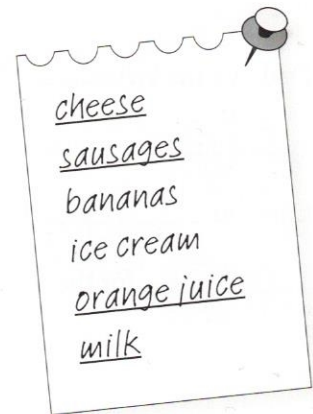 cheese
sausages
bananas
ice cream
orange juice
milk